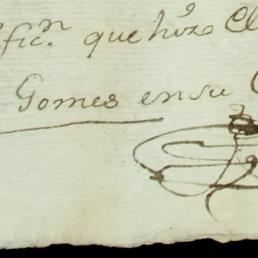 fic.n que hizo Cl
Gomes en su C